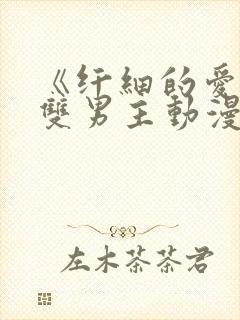 《纤細的愛
雙男主動漫
左木茶茶君